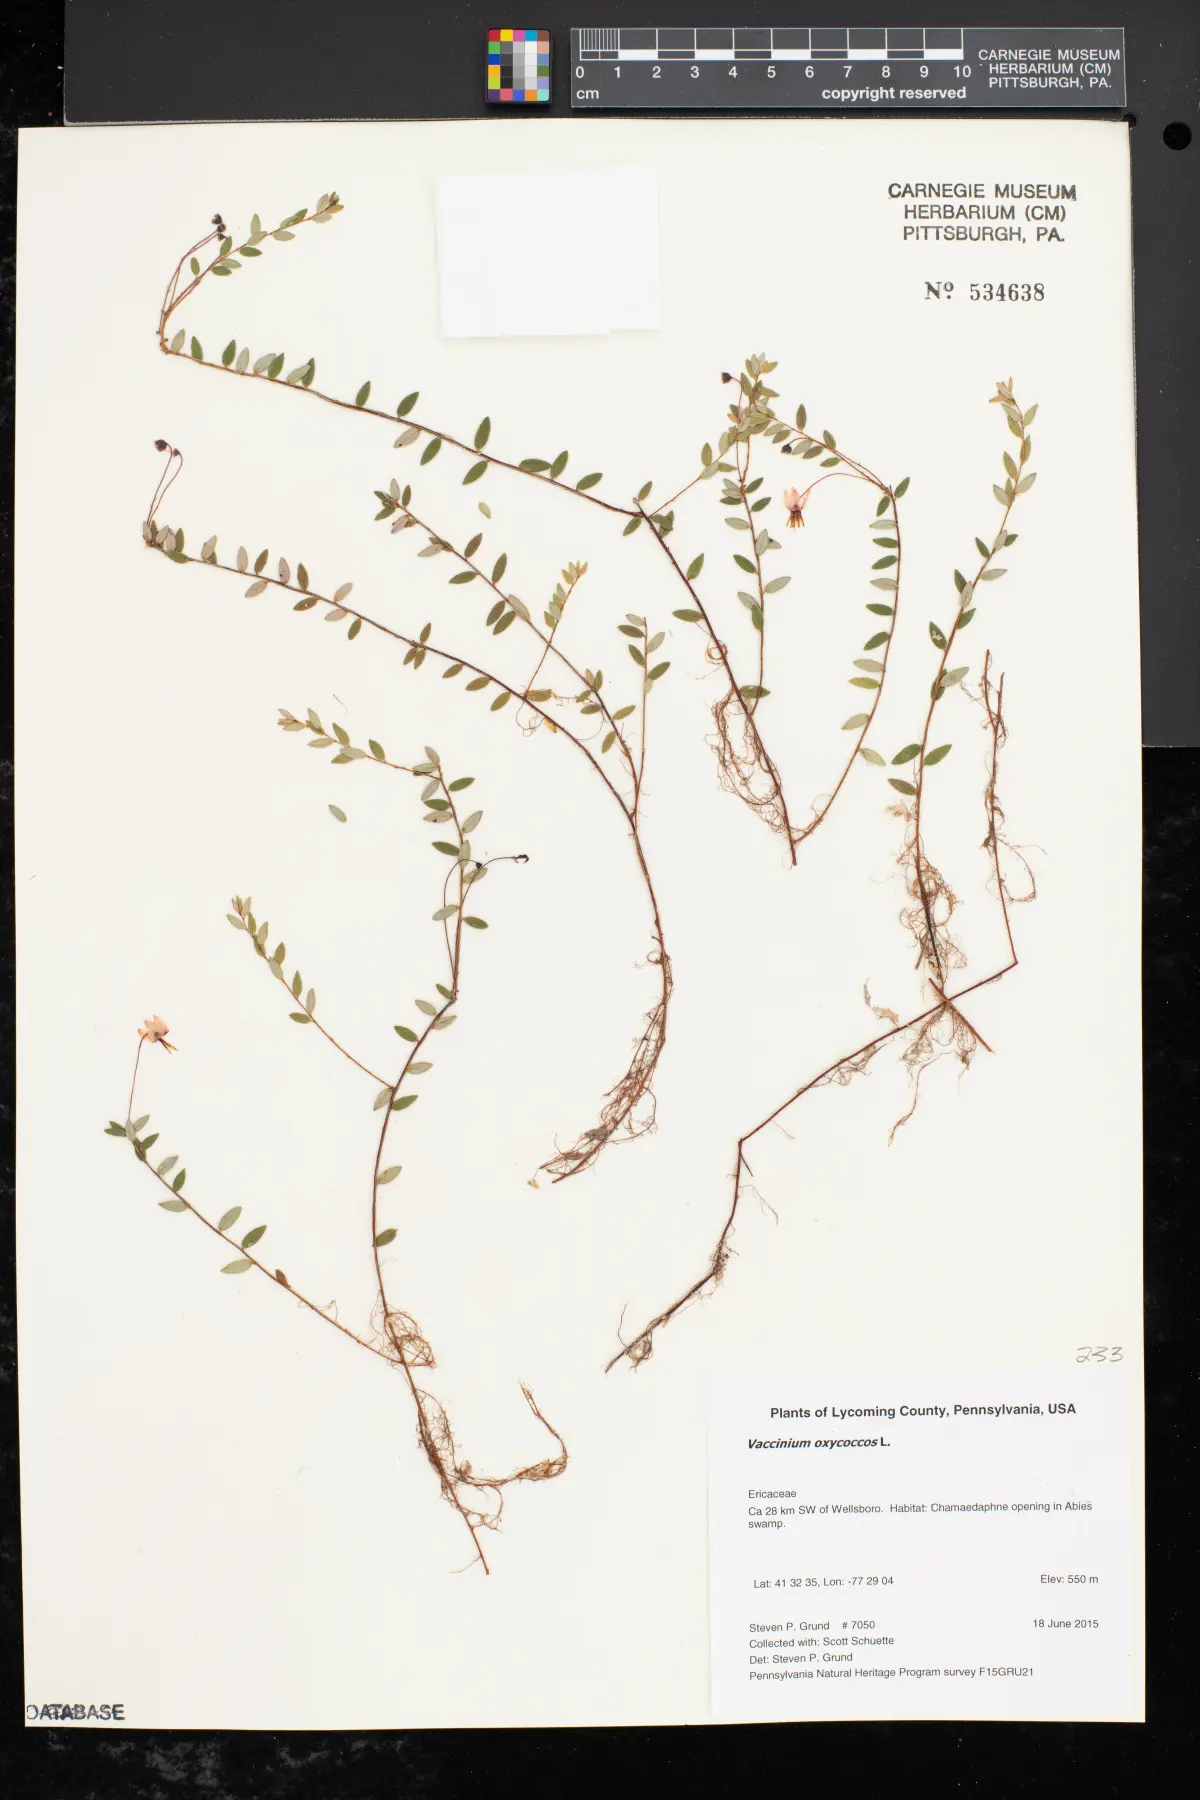 0 1 2 3 4 5 6 7 8 9 10
cm
copyright reserved
CARNEGIE MUSEUM
HERBARIUM (CM)
PITTSBURGH, PA.
CARNEGIE MUSEUM
HERBARIUM (CM)
PITTSBURGH, PA.
Nº 534638
233
Plants of Lycoming County, Pennsylvania, USA
Vaccinium oxycoccos L.
Ericaceae
Ca 28 km SW of Wellsboro. Habitat: Chamaedaphne opening in Abies
swamp.
Lat: 41 32 35, Lon: -77 29 04 Elev: 550 m
Steven P. Grund # 7050 18 June 2015
Collected with: Scott Schuette
Det: Steven P. Grund
Pennsylvania Natural Heritage Program survey F15GRU21
DATABASE